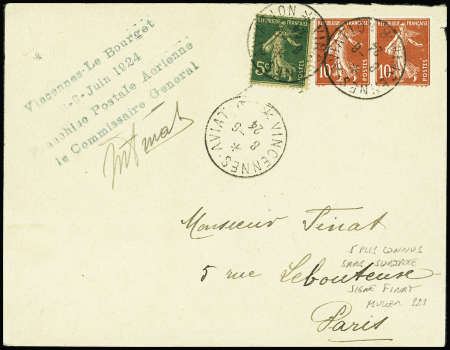 Vincennes-Le Bourget
Juin 1924
Franchise Postale Aérienne
le Commissaire General
REPUBLIQUE FRANÇAISE
5c POSTES
REPUBLIQUE FRANÇAISE
10c POSTES
REPUBLIQUE FRANÇAISE
10c POSTES
VINCENNES-AVIATION
8 -6
24
Monsieur Finat
5 rue Lebouteuse
Paris
5 PLIS CONNUS
SANS SURTAXE
SIGNE FINAT
MULLER 221